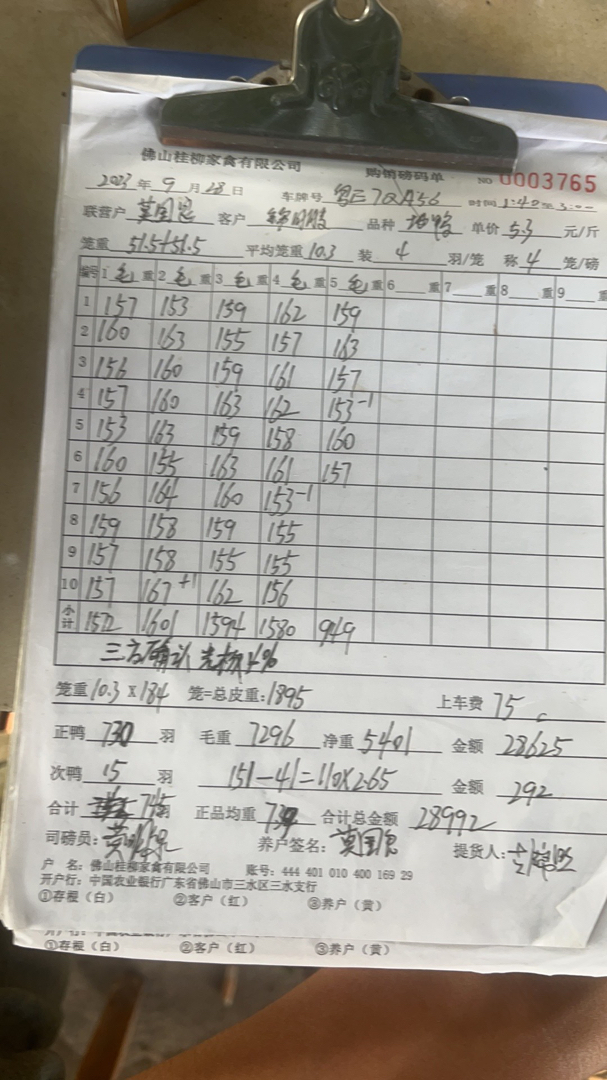 佛山桂柳家禽有限公司 购销磅码单 NO 0003765
2023年9月28日 车牌号 时间
联营户 莫国恩 客户 品种 单价 5.3 元/斤
笼重 51.5+51.5 平均笼重 10.3 装 4 羽/笼 称 4 笼/磅
编号 1 毛 重 2 毛 重 3 毛 重 4 毛 重 5 毛 重 6 重 7 重 8 重 9 重
1 157 153 159 162 159
2 160 163 155 157 163
3 156 160 159 161 157
4 157 160 163 162 153-1
5 153 163 159 158 160
6 160 155 163 161 157
7 156 164 160 153-1
8 159 158 159 155
9 157 158 155 155
10 157 167+1 162 156
小计 1572 1601 1594 1580 949
三方确认 4%
笼重 10.3×184 笼=总皮重: 1895 上车费 75
正鸭 730 羽 毛重 7296 净重 5401 金额 28625
次鸭 15 羽 151-41=110×2.65 金额 292
合计 745 羽 正品均重 合计总金额 28992
司磅员: 养户签名: 莫国恩 提货人:
户 名: 佛山桂柳家禽有限公司 账号: 444 401 010 400 169 29
开户行: 中国农业银行广东省佛山市三水区三水支行
①存根(白) ②客户(红) ③养户(黄)
①存根(白) ②客户(红) ③养户(黄)